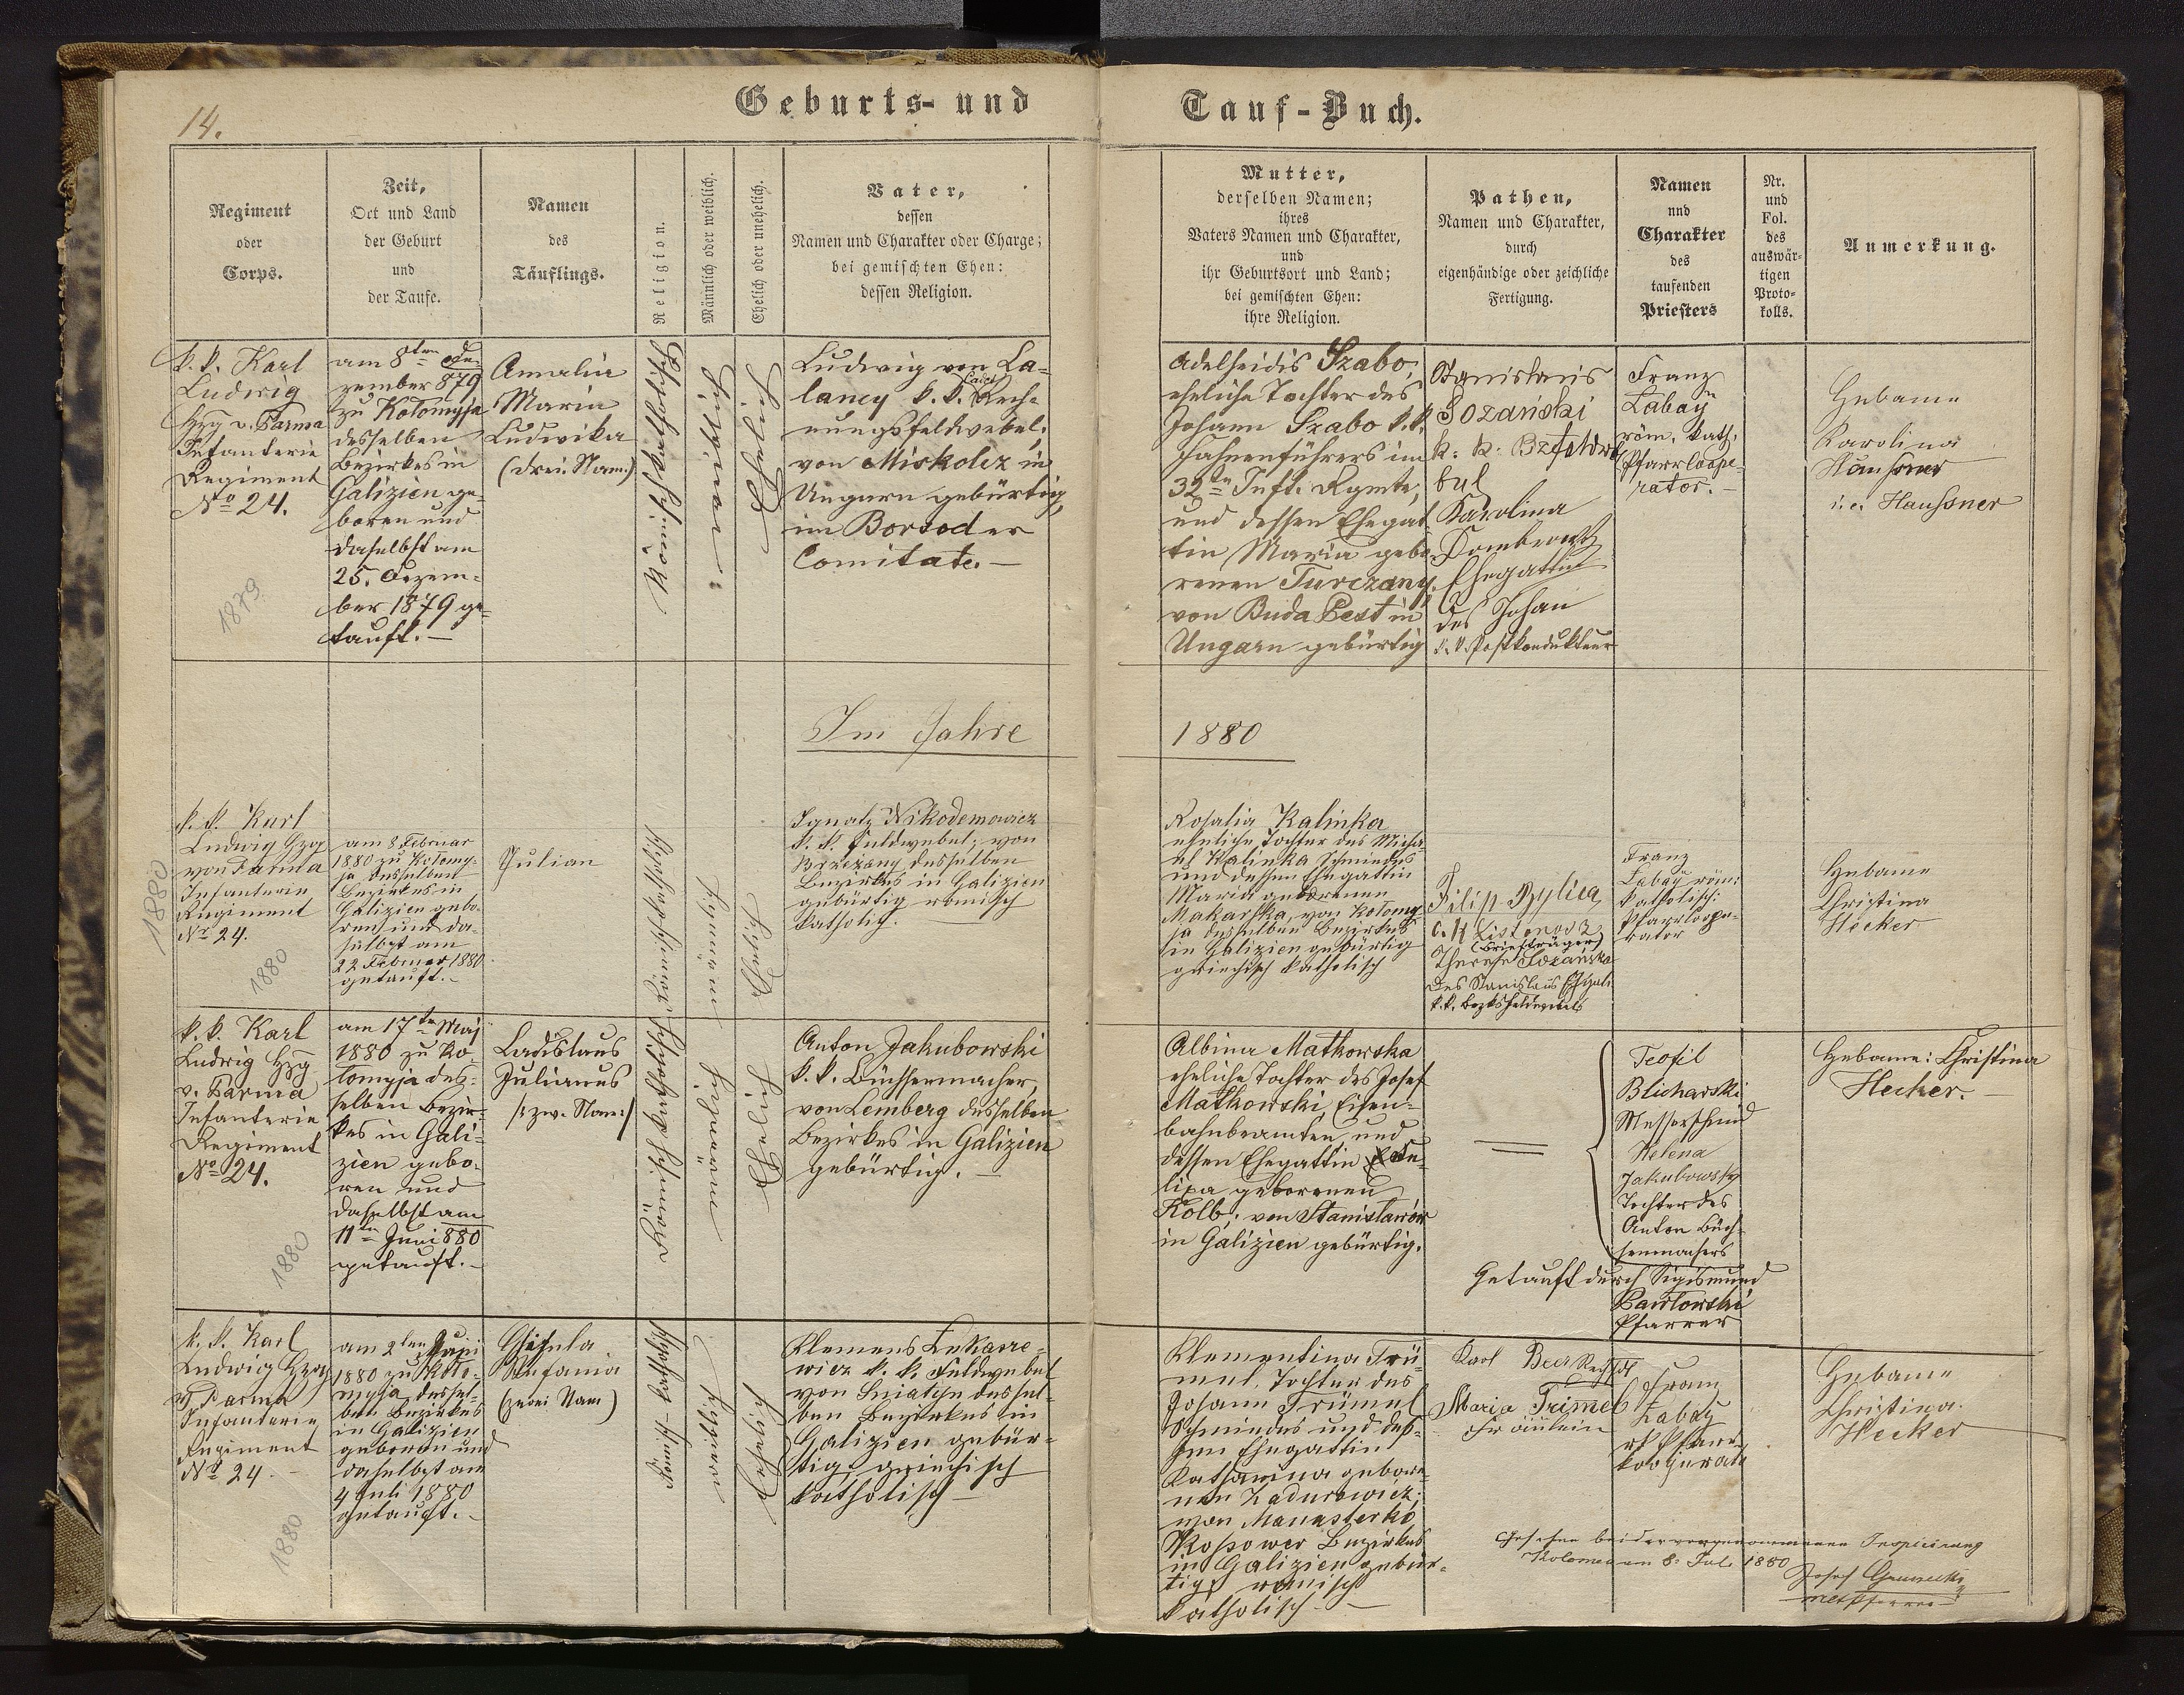 14.
Geburts- und
Tauf-Buch.
Regiment
oder
Corps.
Zeit,
Ort und Land
der Geburt
und
der Taufe.
Namen
des
Täuflings.
Religion.
Männlich oder weiblich.
Ehelich oder unehelich.
Vater,
dessen
Namen und Charakter oder Charge;
bei gemischten Ehen:
dessen Religion.
Mutter,
derselben Namen;
ihres
Vaters Namen und Charakter,
und
ihr Geburtsort und Land;
bei gemischten Ehen:
ihre Religion.
Pathen,
Namen und Charakter,
durch
eigenhändige oder zeichliche
Fertigung.
Namen
und
Charakter
des
taufenden
Priesters
Nr.
und
Fol.
des
auswär-
tigen
Proto-
kolls.
Anmerkung.
k. k. Karl
Ludwig
Hzg v. Parma
Infanterie
Regiment
No 24.
1879
am 8ten De-
zember 879
zu Kolomyja
desselben
Bezirkes in
Galizien ge-
boren und
daselbst am
25. Dezem-
ber 1879 ge-
tauft.—
Amalia
Maria
Ludwika
(drei Nam:)
Römisch katholisch
Ludwig von La-
lancy k. k. Rech-
nungsfeldwebel,
von Miskolcz in
Ungarn gebürtig,
im Borsoder
Comitate.—
Adelheidis Szabo,
eheliche Tochter des
Johann Szabo k. k.
Fahnenführers im
32ten Inft. Rgmte,
und dessen Ehegat-
tin Maria gebo-
renen Turczany,
von Buda Pest in
Ungarn gebürtig
Stanislaus
Sozański
k. k.
Karolina
Dombrowsk
Ehegattin
des Johan
k. k. Postkondukteur
Franz
Labaÿ
röm. kath.
Pfarrkoope-
rator.—
Hebame
Karolina
Haussner
i. e. Haussner
Im Jahre
1880
1880
k. k. Karl
Ludwig Hzg
von Parma
Infanterie
Regiment
Nr 24.
1880
am 8 Februar
1880 zu Kolomy-
ja desselben
Bezirkes in
Galizien gebo-
ren und da-
selbst am
22 Februar 1880
getauft.—
Julian
Ignatz Nikodemowicz
k. k. Feldwebel, von
Brzeżany desselben
Bezirkes in Galizien
gebürtig römisch
katholisch.
Rosalia Kalinka
eheliche Tochter des Micha-
el Kalinka Schmiedes
und dessen Ehegattin
Maria geborenen
Makarska, von Kolomy-
ja desselben Bezirkes
in Galizien gebürtig
griechisch katholisch
Filip Bylica
c. k Listonosz
(Briefträger)
Therese Sozańska
des Stanislaus Ehgatt.
k. k. Bezksfeldwebels
Franz
Labaÿ röm:
katholisch:
Pfarrkoope-
rator
Hebame
Christina
Hecker
k. k. Karl
Ludwig Hzg
v. Parma
Infanterie
Regiment
No 24.
1880
am 17ten Maj
1880 zu Ko-
lomyja des-
selben Bezir-
kes in Gali-
zien gebo-
ren und
daselbst am
11ten Juni 880
getauft.—
Ladislaus
Julianus
/: zw. Nam :/
Römisch katholisch
Männlich
Ehelich
Anton Jakubowski
k. k. Büchsenmacher,
von Lemberg desselben
Bezirkes in Galizien
gebürtig.—
Albina Matkowska
eheliche Tochter des Josef
Matkowski, Eisen-
bahnbeamten und
dessen Ehegattin
geborenen
Kolb, von Stanislawów
in Galizien gebürtig.
Teofil
Blicharski
Messerschmid
Helena
Jakubowsky
Tochter des
Anton Büch-
senmachers
Getauft durch Sigismund
Pawlowski
Pfarrer
Hebame: Christina
Hecker.—
k. k. Karl
Ludwig Hzg
v Parma
Infanterie
Regiment
No 24.—
1880
am 2ten Juni
1880 zu Kolo-
myja dessel-
ben Bezirkes
in Galizien
geboren und
daselbst am
4 Juli 1880
getauft.—
Ghisela
Stefania
(zwei Nam)
Klemens Lukasie-
wicz k. k. Feldwebel
von Sniatyn dessel-
ben Bezirkes in
Galizien gebür-
tig, griechisch
katholisch—
Klementina Trü-
mel, Tochter des
Johann Trümel
Schmiedes und des-
sen Ehegattin
Katharina gebore-
nen Zadurowicz;
von Manasterko
Kossower Bezirkes
in Galizien gebür-
tig, römisch
katholisch—
Karl Beer
Maria Trimel
Fräulein
Franz
Labaÿ
rk Pfarr-
kooperator
Hebame
Christina
Hecker
Gesehen bei der vorgenommenen Inspicirung
Kolomea am 8. Juli 1880
Josef